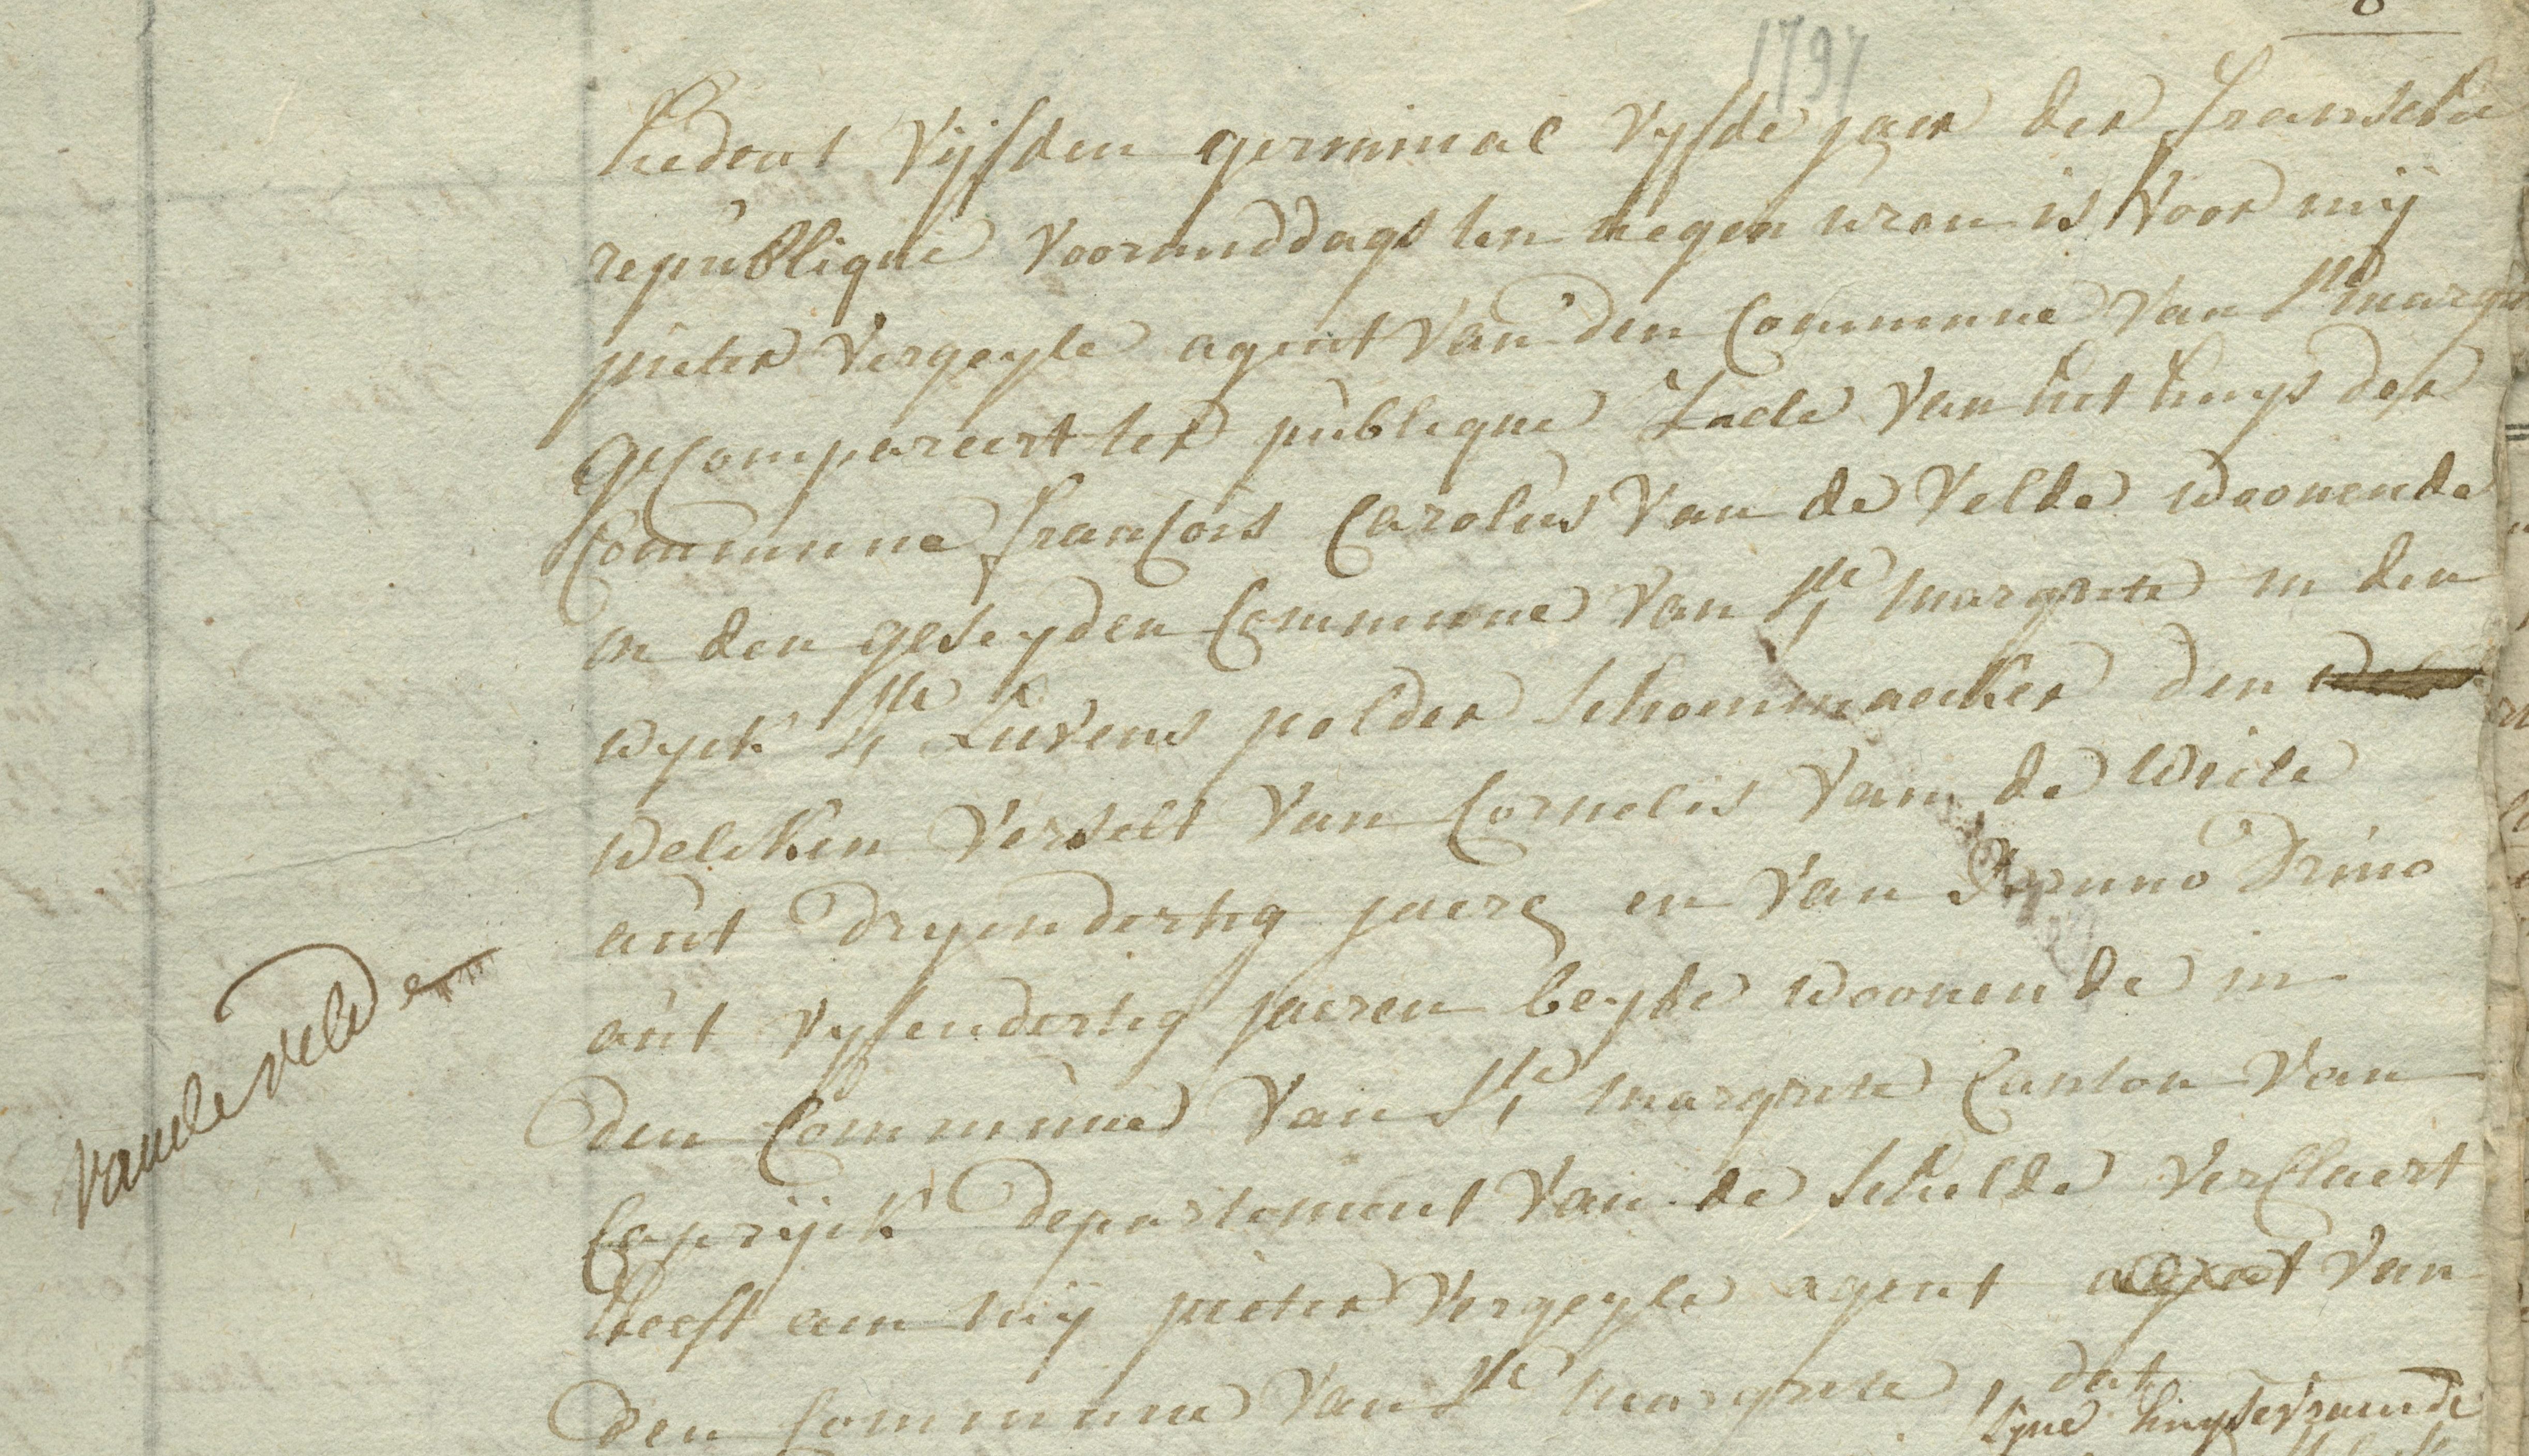 8
1797
hedent Vijfden germinal Vyfde jaer der fransche
republique voormiddags ten negen uren is voor mij
pieter Vergeyle agent van den Commune van Ste margr
geCompareert ter publique Zaele van het huys der
Commune franCois Carolus Van de Velde woonende
in den geseyden Commune van Ste margrete in den
wyck Ste Livens polder schoenmaecker den
welcken verselt van Cornelis Van de Wiele
aut dryendertig jaere en van Bruno
aut vyfendertig jaeren beyde woonende in
den Commune van Ste margrete Canton van
Capryck departement van de schelde verClaert
heeft aen mij pieter Vergeyle agent agent van
den Commune van Ste margrete, dat
syne huysevrauwe
Vande velde